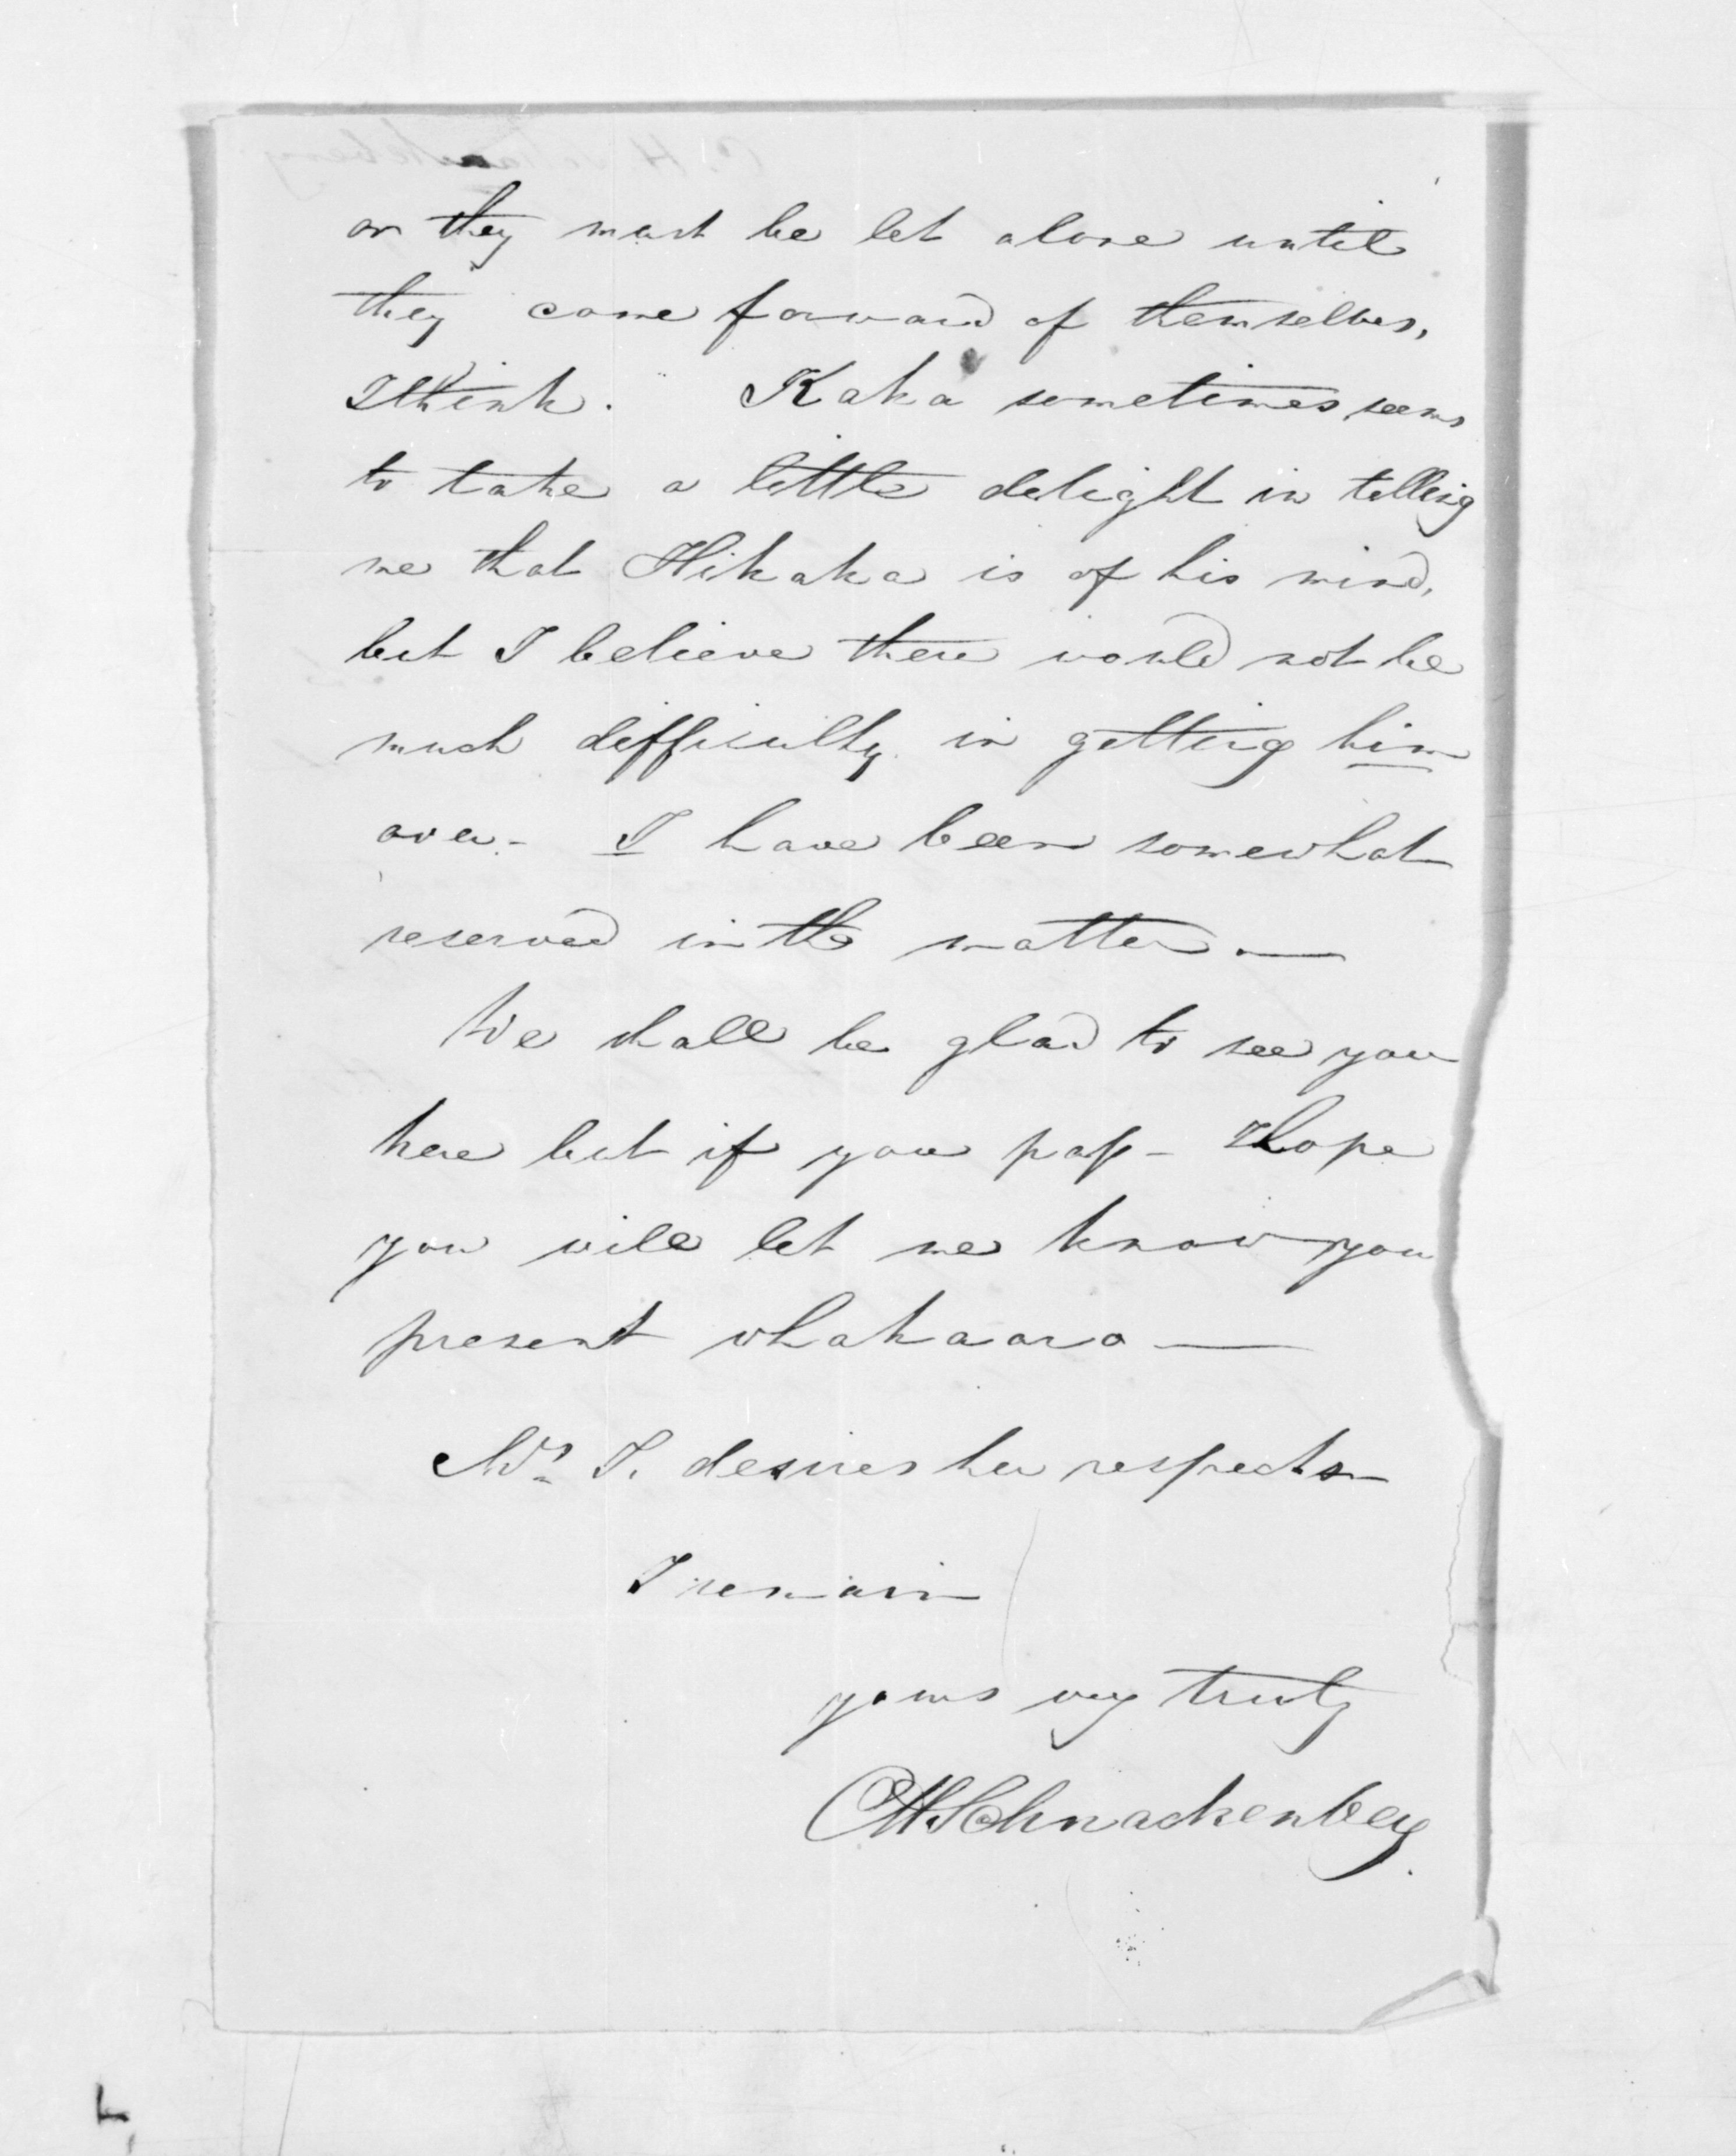 or they must be let alone until
they come forward of themselves,
I think. Kaka sometimes seems
to take a little delight in telling
me that Hikaka is of his mind,
but I believe there would not be
much difficulty in getting him
over - I have been somewhat
reserved in the matter. —
We shall be glad to see you
here but if you pass - I hope
you will let me know you
present whakaaro —
Mrs S. desires her respects —
I remain
yours very truly
CHSchnackenberg.